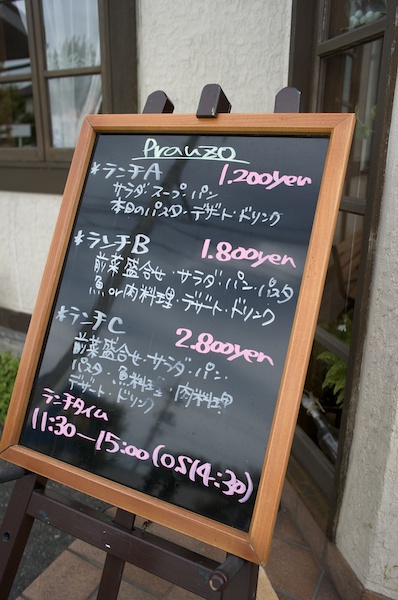 Pranzo
*ランチA 1.200yen
サラダ・スープ・パン
本日のパスタ・デザート・ドリンク
*ランチB 1.800yen
前菜盛合せ・サラダ・パン・パスタ
魚or肉料理・デザート・ドリンク
*ランチC 2.800yen
前菜盛合せ・サラダ・パン・
パスタ・魚料理・肉料理
デザート・ドリンク
ランチタイム
11:30―15:00(OS14:30)